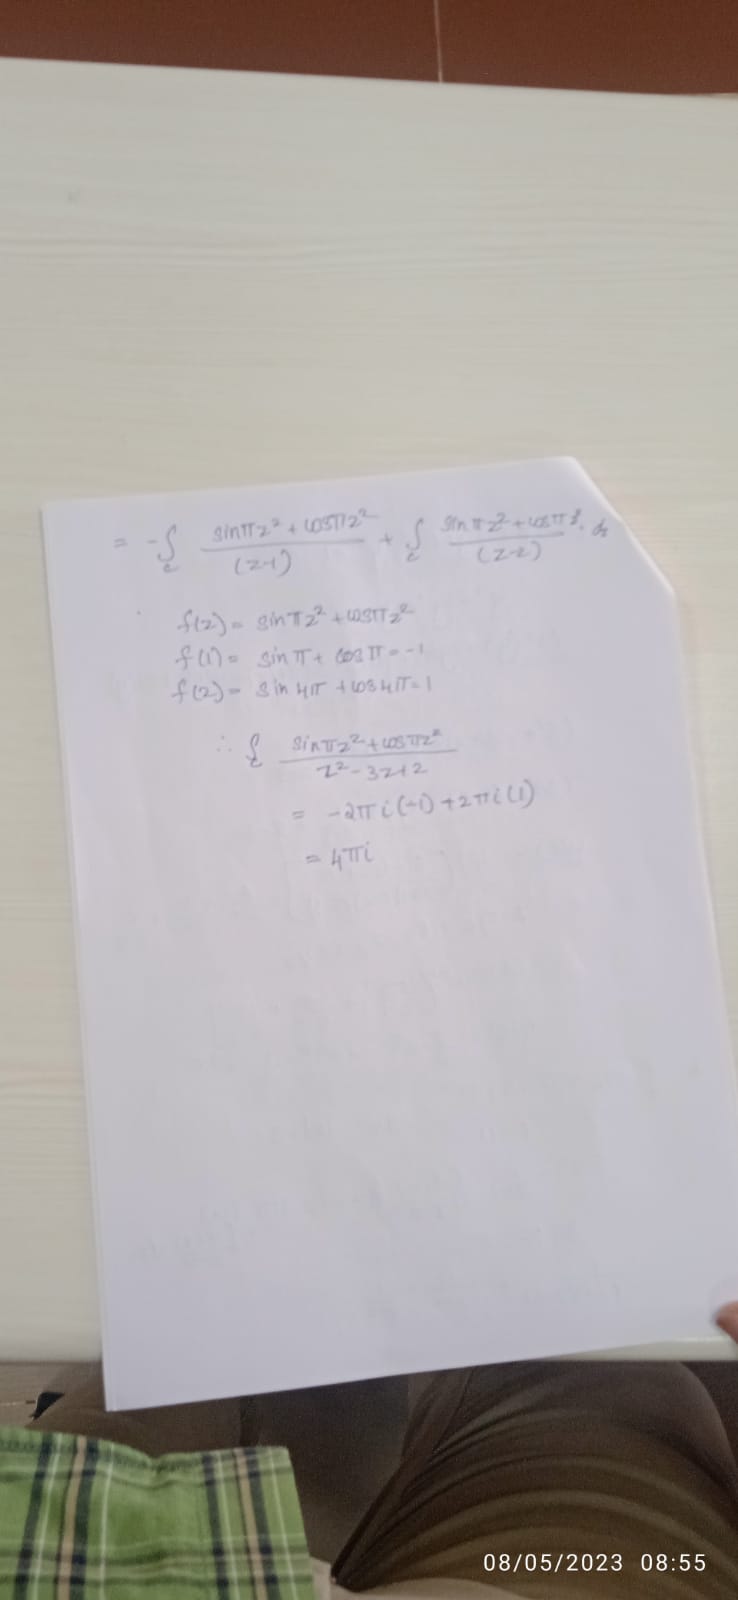 = -∫c sinπz² + cosπz² / (z-1) + ∫c sinπz² + cosπz² / (z-2) . dz
f(z) = sinπz² + cosπz²
f(1) = sinπ + cosπ = -1
f(2) = sin4π + cos4π = 1
∴ ∫c sinπz² + cosπz² / z² - 3z + 2
= -2πi(-1) + 2πi(1)
= 4πi
08/05/2023 08:55